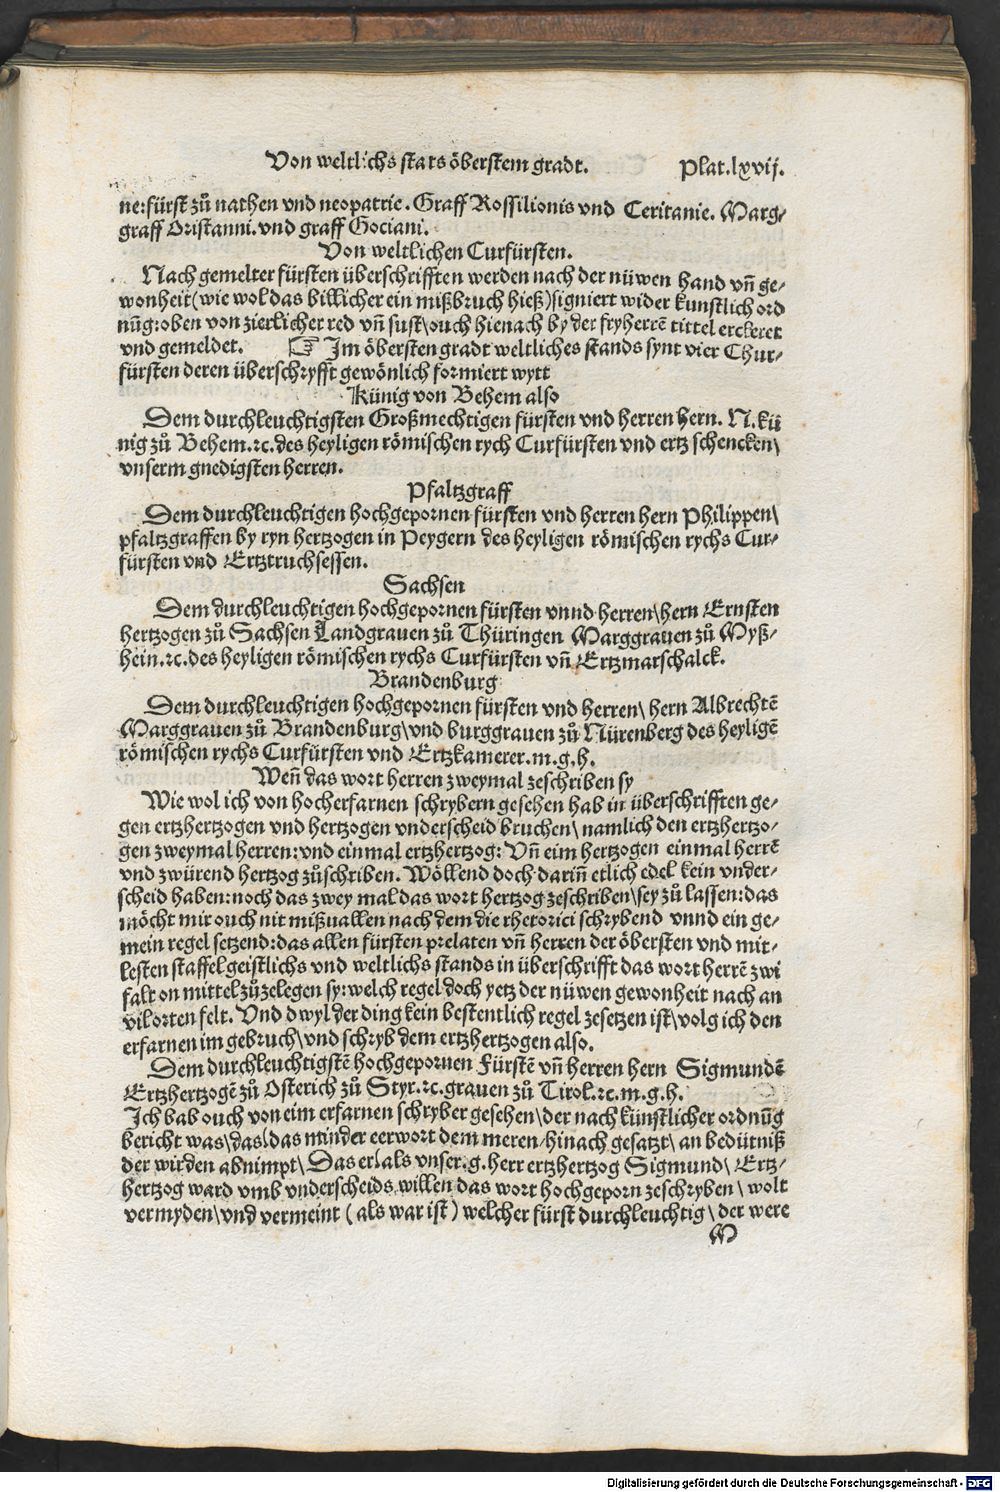 Von weltlichs stats öberstem gradt. Plat.lxvij.
ne:fürst zů nathen vnd neopatrie. Graff Rossilionis vnd Ceritanie. Marg⸗
graff Oristanni.vnd graff Gociani.
Von weltlichen Curfürsten.
Nach gemelter fürsten überschrifften werden nach der nüwen hand vñ ge⸗
wonheit(wie wol das billicher ein mißbruch hieß)signiert wider kunstlich ord
nũg:oben von zierlicher red vñ sust\ouch hienach by der fryherrẽ tittel erckeret
vnd gemeldet. ☞ Im öbersten gradt weltliches stands synt vier Chur⸗
fürsten deren überschryfft gewönlich formiert wytt
Künig von Behem also
Dem durchleuchtigsten Großmechtigen fürsten vnd herren hern. N.kü
nig zů Behem.⁊c.des heyligen römischen rych Curfürsten vnd ertz schencken\
vnserm gnedigsten herren.
Pfaltzgraff
Dem durchleuchtigen hochgepornen fürsten vnd herren hern Philippen\
pfaltzgraffen by ryn hertzogen in Peygern des heyligen römischen rychs Cur⸗
fürsten vnd Ertztruchsessen.
Sachsen
Dem durchleuchtigen hochgepornen fürsten vnnd herren\hern Ernsten
hertzogen zů Sachsen Landgrauen zů Thüringen Marggrauen zů Myß⸗
hein.⁊c.des heyligen römischen rychs Curfürsten vñ Ertzmarschalck.
Brandenburg
Dem durchleuchtigen hochgepornen fürsten vnd herren\ hern Albrechtẽ
Marggrauen zů Brandenburg\vnd burggrauen zů Nürenberg des heyligẽ
römischen rychs Curfürsten vnd Ertzkamerer.m.g.h.
Weñ das wort herren zweymal zeschriben sy
Wie wol ich von hocherfarnen schrybern gesehen hab in überschrifften ge⸗
gen ertzhertzogen vnd hertzogen vnderscheid bruchen\ namlich den ertzhertzo⸗
gen zweymal herren:vnd einmal ertzhertzog: Vñ eim hertzogen einmal herrẽ
vnd zwürend hertzog zůschriben. Wöllend doch dariñ etlich edel kein vnder⸗
scheid haben:noch das zwey mal das wort hertzog zeschriben\sey zů lassen:das
möcht mir ouch nit mißuallen nach dem die rhetorici schrybend vnnd ein ge⸗
mein regel setzend:das allen fürsten prelaten vñ herren der öbersten vnd mit⸗
lesten staffel geistlichs vnd weltlichs stands in überschrifft das wort herrẽ zwi
falt on mittel zůzelegen sy:welch regel doch yetz der nüwen gewonheit nach an
vil orten felt. Vnd dwyl der ding kein bestentlich regel zesetzen ist\volg ich den
erfarnen im gebruch\vnd schryb dem ertzhertzogen also.
Dem durchleuchtigstẽ hochgepornen Fürstẽ vñ herren hern Sigmundẽ
Ertzhertzogẽ zů Osterich zů Styr.⁊c.grauen zů Tirol.⁊c.m.g.h.
Ich bab ouch von eim erfarnen schryber gesehen\der nach künstlicher ordnũg
bericht was\das\das minder eerwort dem meren hinach gesatzt\an bedütniß
der wirden abnimpt\ Das er\als vnser.g.herr ertzhertzog Sigmund\ Ertz⸗
hertzog ward vmb vnderscheids willen das wort hochgeporn zeschryben\ wolt
vermyden\vnd vermeint (als war ist) welcher fürst durchleuchtig\ der were
M
Digitalisierung gefördert durch die Deutsche Forschungsgemeinschaft - DFG